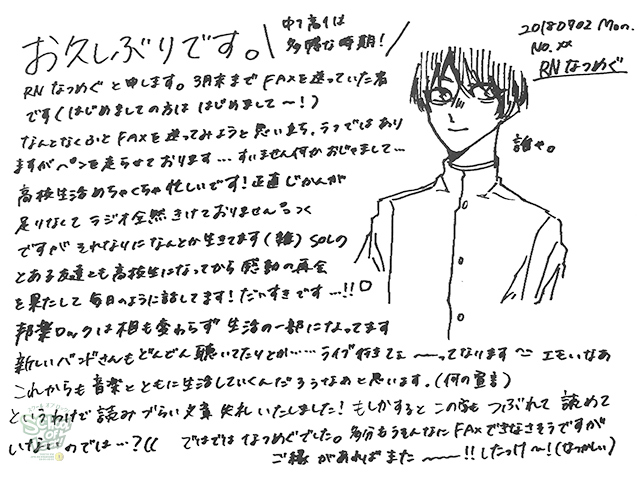 お久しぶりです。
中1高1は
多感な時期!
20180702 Mon.
No.xx
RN なつめぐ
RN なつめぐ と申します。3月末まで FAXを送っていた者
です(はじめましての方は はじめまして〜!)
なんとなくふと FAXを送ってみようと思い立ち、ラフではあり
ますがペンを走らせております…すいません何かおじゃまして…
誰や。
高校生活めちゃくちゃ忙しいです!正直じかんが
足りなくて ラジオ全然きけておりません。つく
ですが それなりになんとか生きてます(雑) SOLの
とある友達とも高校生になってから 感動の再会
を果たして 毎日のように話してます!だいすきです…!!
邦楽ロックは相も変わらず 生活の一部になってます
新しいバンドさんもどんどん聴いてたりとか……ライブ行きてぇ 〜〜ってなります〜 エモいなあ
これからも音楽とともに生活していくんだろうなぁと思います。(何の宣言)
というわけで読みづらい文章 失礼いたしました!もしかすると この字も つぶれて 読めて
いないのでは…?(( ではでは なつめぐでした。多分もうそんなに FAXできなさそうですが
ご縁があればまた 〜〜!!したっけ〜!(なつかしい)